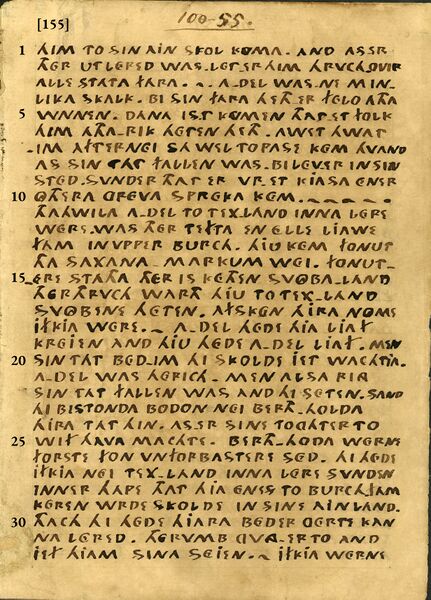 100-55.
[155]
1 HIM TO SIN AIN SKOL KVMA. AND AS.ER
THÊR UT LÊRED WAS. LÊT.ER HIM THRUCH.OVIR
ALLE STATA FARA. ~ . A-DEL WAS.NE MIN-
LIKA SKALK. BI SIN FARA HETH.ER FELO ATHA
5 WNNEN. DANA IS.T KVMEN THAT.ET FOLK
HIM ATHA-RIK HETEN HETH. AWET HWAT
-IM AFTERNEI SA WEL TO PASE KEM HWAND
AS SIN TAT FALLEN WAS. BILEVER IN SIN
STED. SVNDER THAT ER VR-ET KIASA ENER
10 OTHERA GREVA SPREKA KEM. ~ ~ ~ ~
THAHWILA A-DEL TO TEX-LAND INNA LERE
WERE. WAS THER TEFTA EN ELLE LIAWE
FAM IN VPPER BURCH. HIU KEM FONUT
THA SAXANA MARKUM WEI. FONUT-
15 ERE STATHA THER IS KETHEN SVOBA-LAND
THERTHRUCH WARTH HIU TO TEX-LAND
SVOBENE HETEN. AFSKEN HIRA NOME
IFKIA WERE. ~ A-DEL HEDE HIA LIAF
KREIEN AND HIU HEDE A-DEL LIAF. MEN
20 SIN TAT BED.IM HI SKOLDE IET WACHTIA.
A-DEL WAS HERICH. MEN ALSA RING
SIN TAT FALLEN WAS AND HI SETEN. SAND
HI BISTONDA BODON NEI BERTH-HOLDA
HIRA TAT HIN. AS.ER SINE TOCHTER TO
25 WIF HAVA MACHTE. BERTH-HODA WERE
FORSTE FON VNFORBASTERE SED. HI HEDE
IFKIA NEI TEX-LAND INNA LERE SVNDEN
INNER HAPE THAT HIA ENIS TO BURCH.FAM
KEREN WRDE SKOLDE IN SINE AIN LAND.
30 THACH HI HEDE HIARA BEDER GERTE KAN
NA LERED. THERUMB GVNG-ER TO AND
IEF HIAM SINA SEIEN. ~ IFKIA WERE